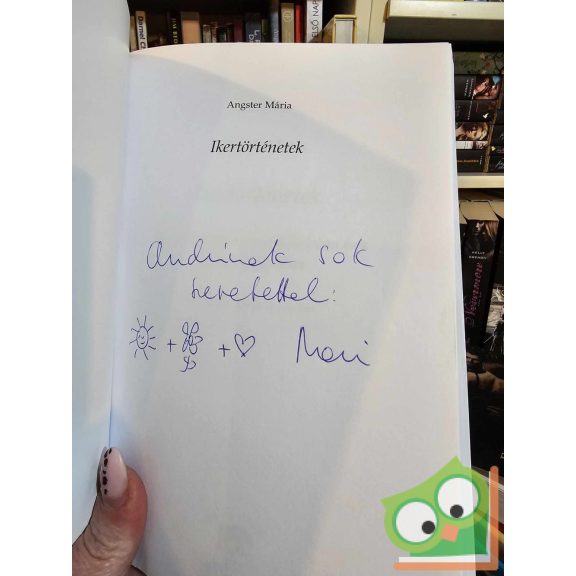 Angster Mária
Ikertörténetek
Andinak sok
szeretettel:
+ + Mari
ELSŐ NAP